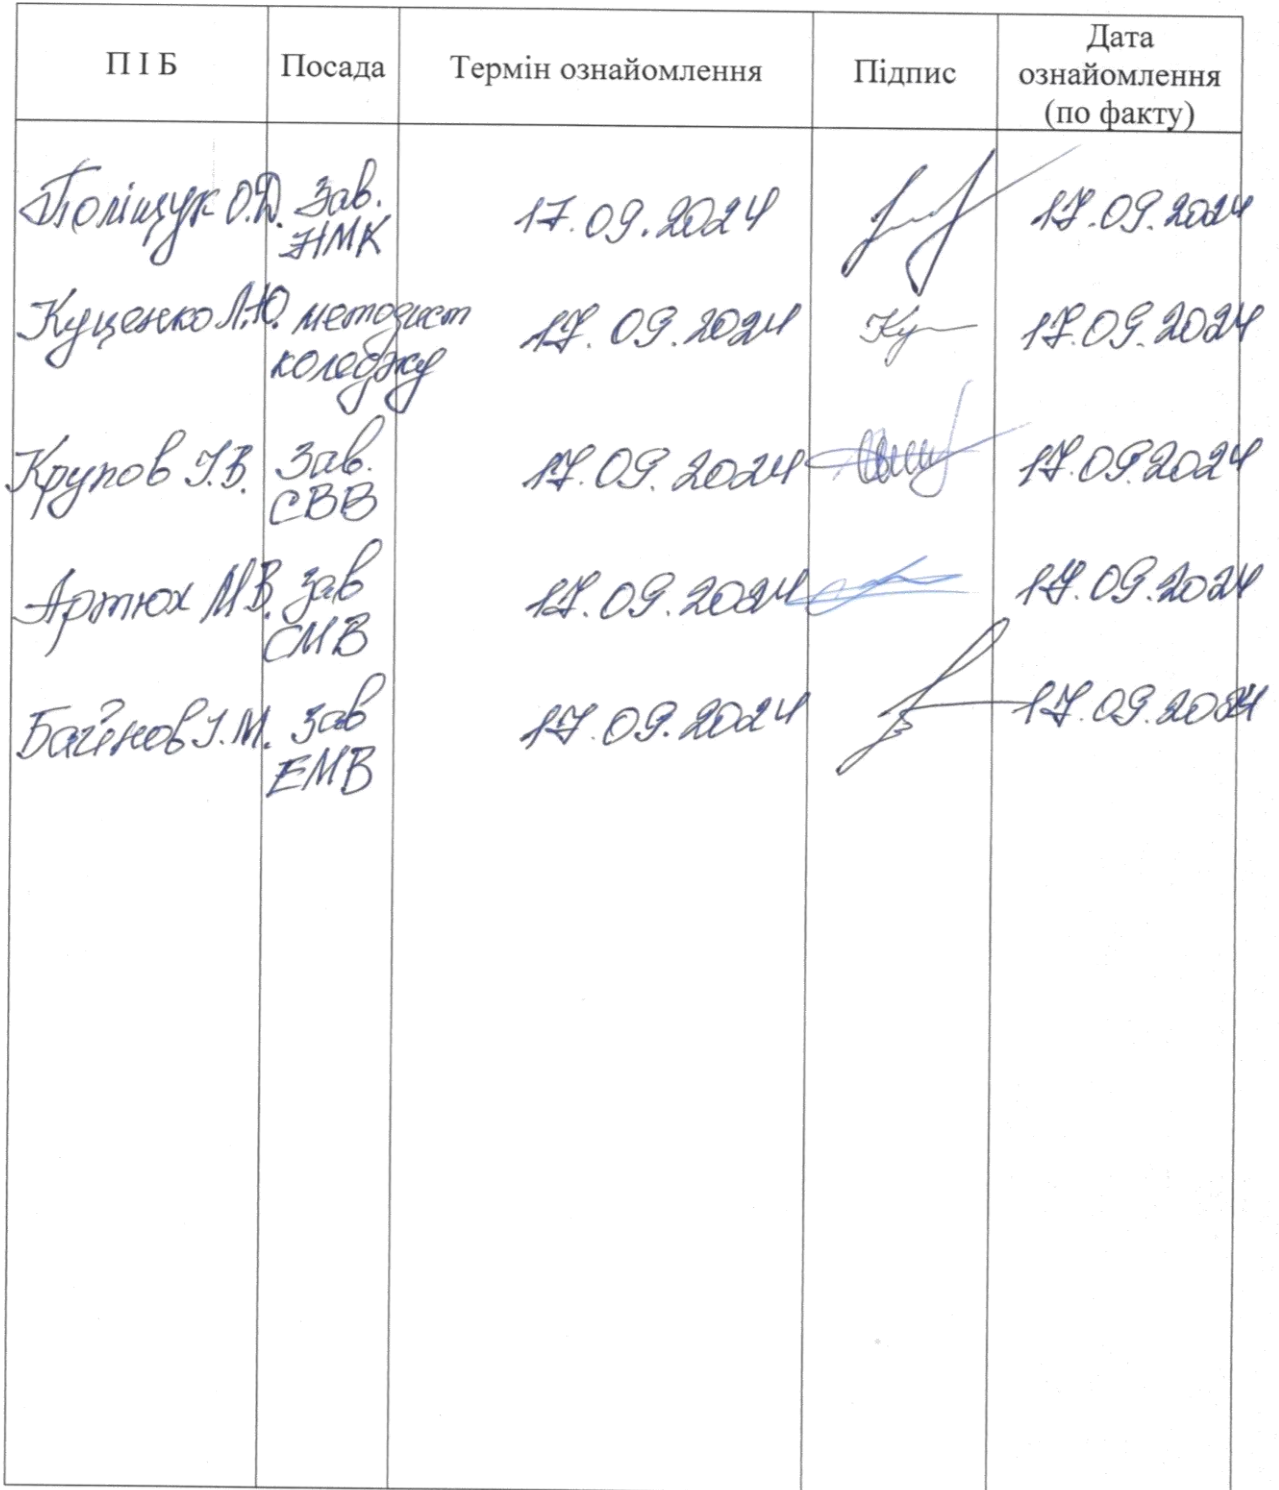 П І Б Посада Термін ознайомлення Підпис Дата ознайомлення (по факту)
Поліщук О.Д. Зав. НМК 17.09.2024 17.09.2024
Куценко Л.Ю. методист коледжу 17.09.2024 17.09.2024
Крупов І.В. Зав. СВВ 17.09.2024 17.09.2024
Артюх М.В. Зав СМВ 17.09.2024 17.09.2024
Байнов І.М. Зав ЕМВ 17.09.2024 17.09.2024